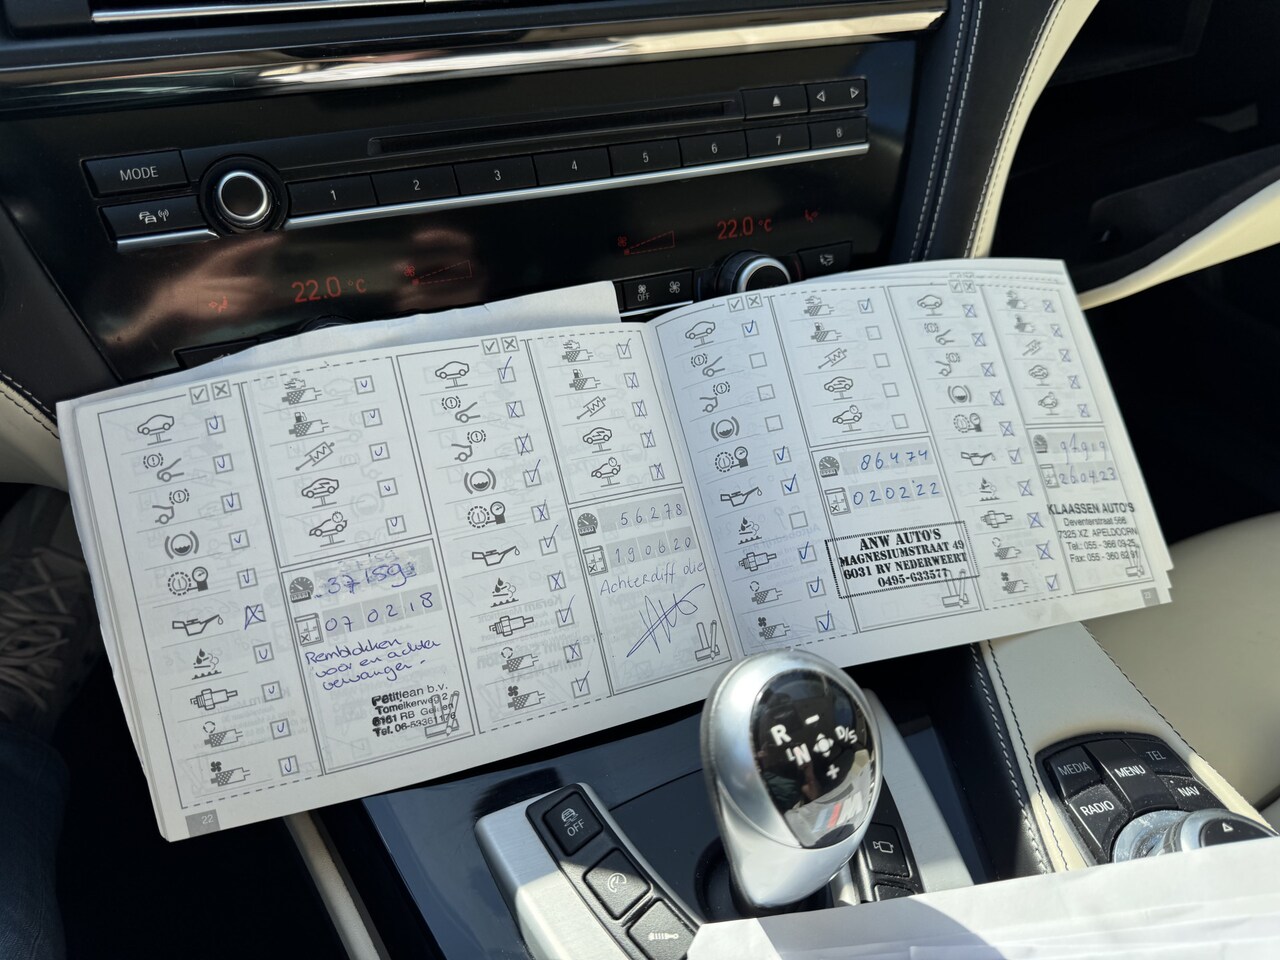 MODE
1 2 3 4 5 6 7 8
22.0 °C
22.0 °C
OFF
37159
07 02 18
Remblokken
voor en achter
vervangen.
Petitjean b.v.
Tomeikerweg 2
6161 RB Geleen
22
56278
19 06 20
Achterdiff olie
86474
02 02 22
ANW AUTO'S
MAGNESIUMSTRAAT 49
6031 RV NEDERWEERT
0495-633577
26 04 23
KLAASSEN AUTO'S
Deventerstraat 566
7325 XZ APELDOORN
R N D/S
- +
M
OFF
MEDIA MENU TEL
RADIO NAV